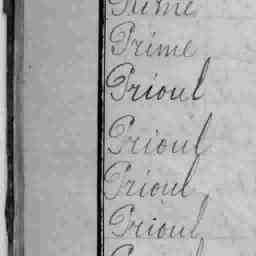 Prime
Prime
Prioul
Prioul
Prioul
Prioul